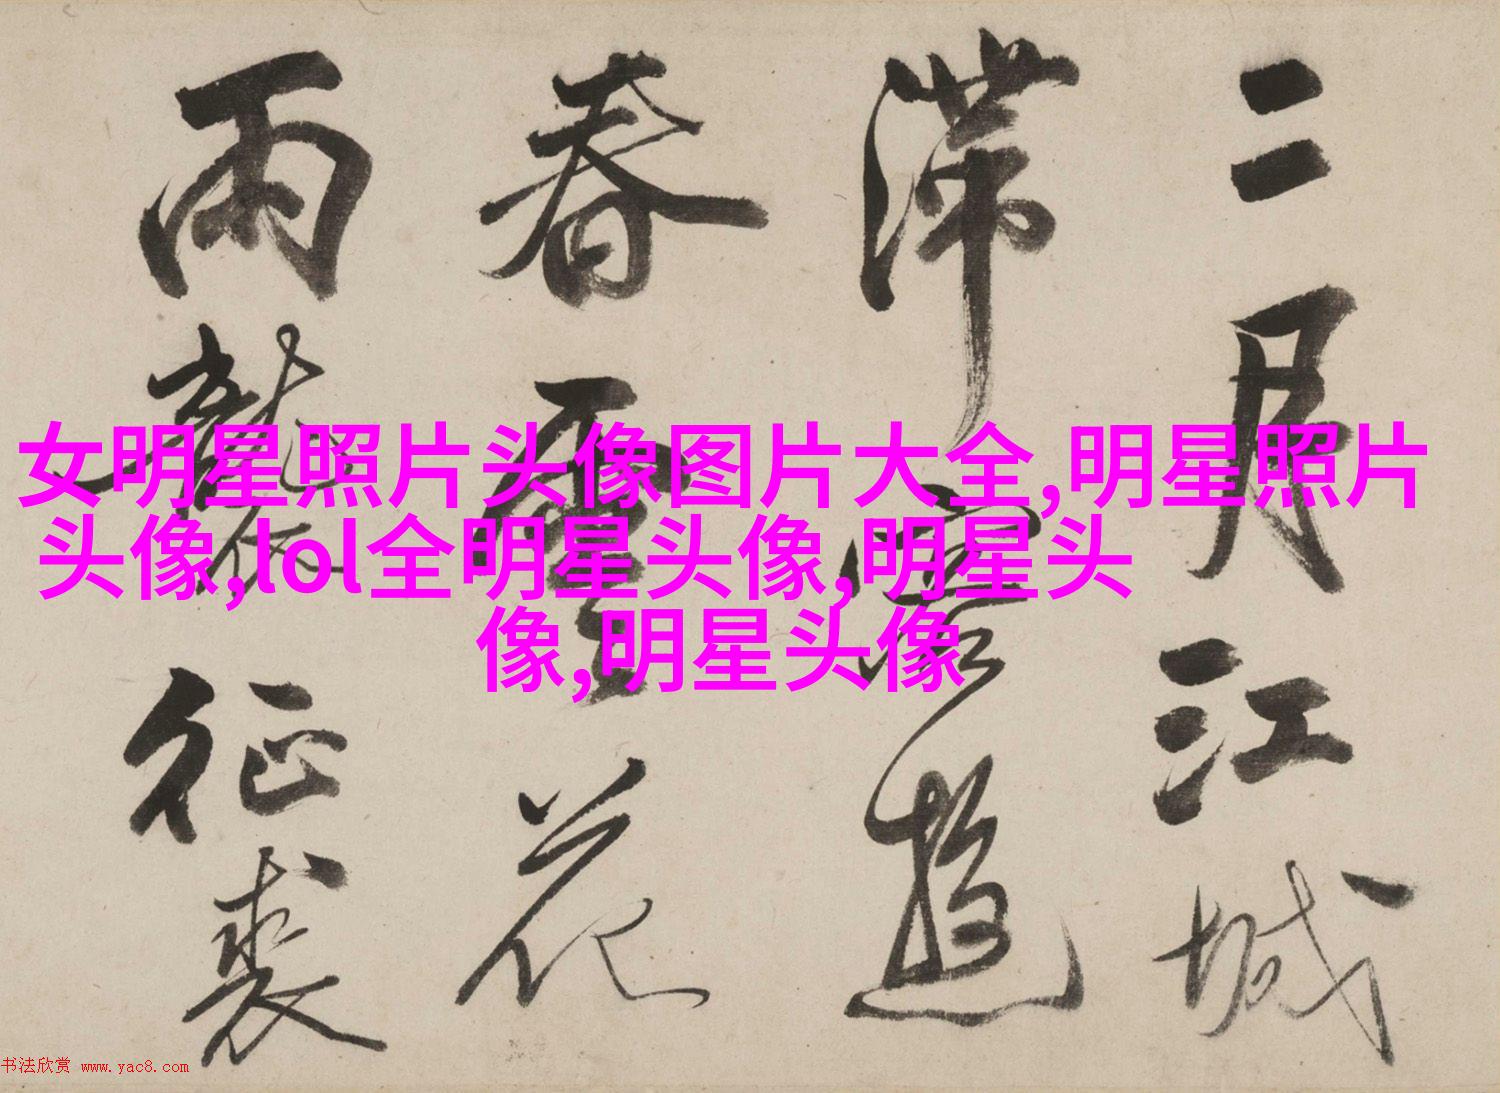 二月江城
滞客遊
春雲花
雨襲征裘
女明星照片头像图片大全,明星照片
头像,lol全明星头像,明星头
像,明星头像
书法欣赏 www.yac8.com